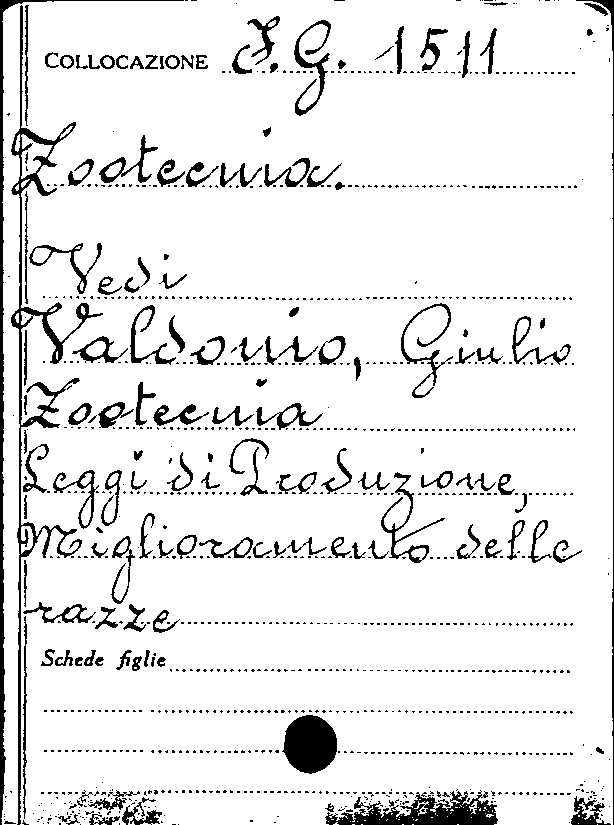 COLLOCAZIONE F. G. 1511
Zootecnia.
Vedi
Valdonio, Giulio
Zootecnia
Leggi di Produzione,
Miglioramento delle
razze
Schede figlie